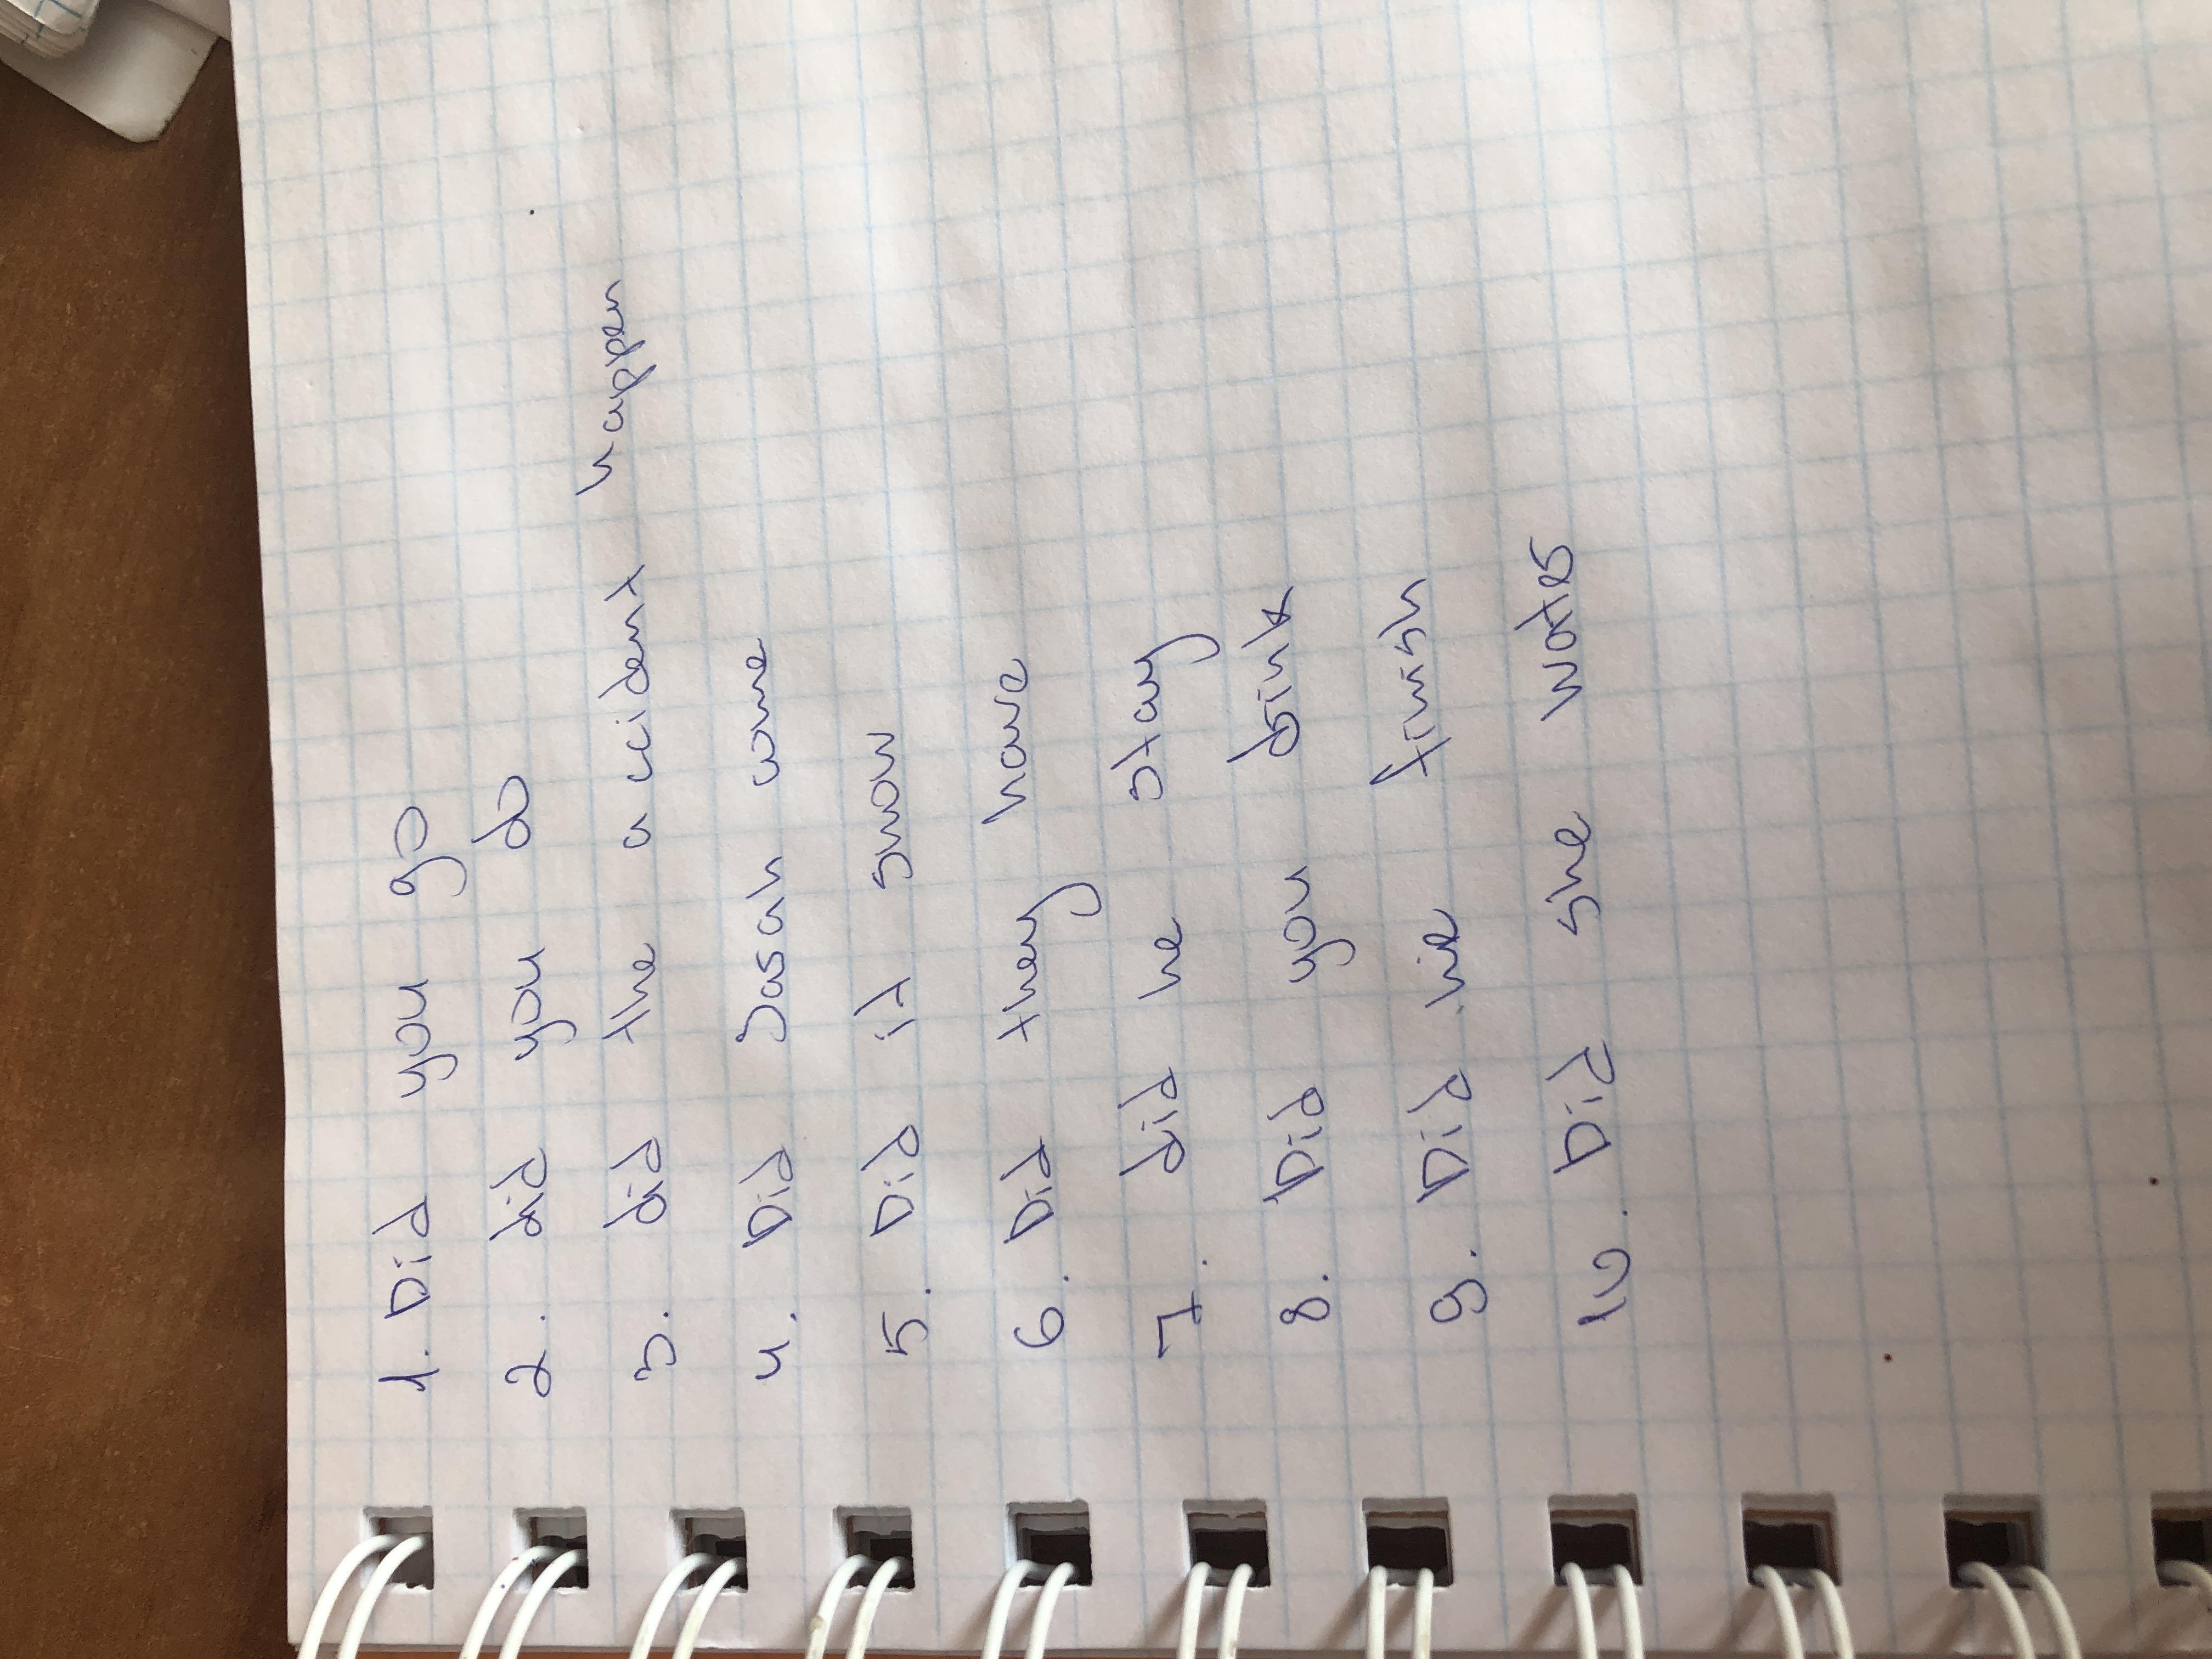 1. Did you go
2. did you do
3. did the accident happen
4. Did Sarah come
5. Did it snow
6. Did they have
7. did he stay
8. Did you drink
9. Did he finish
10. Did she